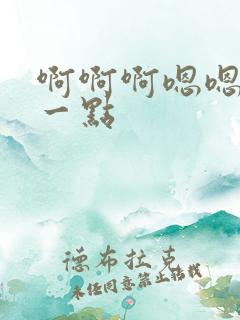 啊啊啊嗯嗯
一點
德布拉克
未经同意禁止转载